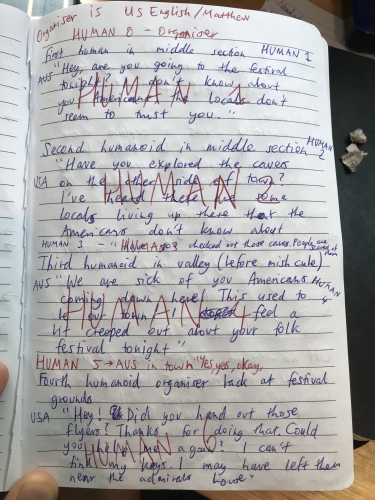 Organiser is US English/Matthew
HUMAN 0 - Organiser
First human in middle section HUMAN 1
AUS "Hey, are you going to the festival
tonight? I don't know about
you Americans the locals don't
seem to trust you."
HUMAN 1
Second humanoid in middle section HUMAN 2
"Have you explored the caves
USA on the other side of town?
I've heard there are some
locals living up there that the
Americans don't know about
HUMAN 2
HUMAN 3 - "Have you checked out those caves. People are
Third humanoid in valley (before mish cube)
AUS "We are sick of you Americans HUMAN 4
coming down here. This used to
be our town. I feel a
bit creeped out about your folk
festival tonight"
HUMAN 4
HUMAN 5 → AUS in town "Yes, yes, okay,
Fourth humanoid organiser back at festival
grounds
USA "Hey! Did you hand out those
flyers? Thanks for doing that. Could
you help me again? I can't
find my keys. I may have left them
near the admirals house"
HUMAN 6